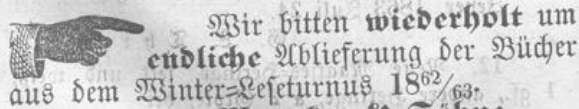 Wir bitten wiederholt um
endliche Ablieferung der Bücher
aus dem Winter-Leseturnus 1862/63.